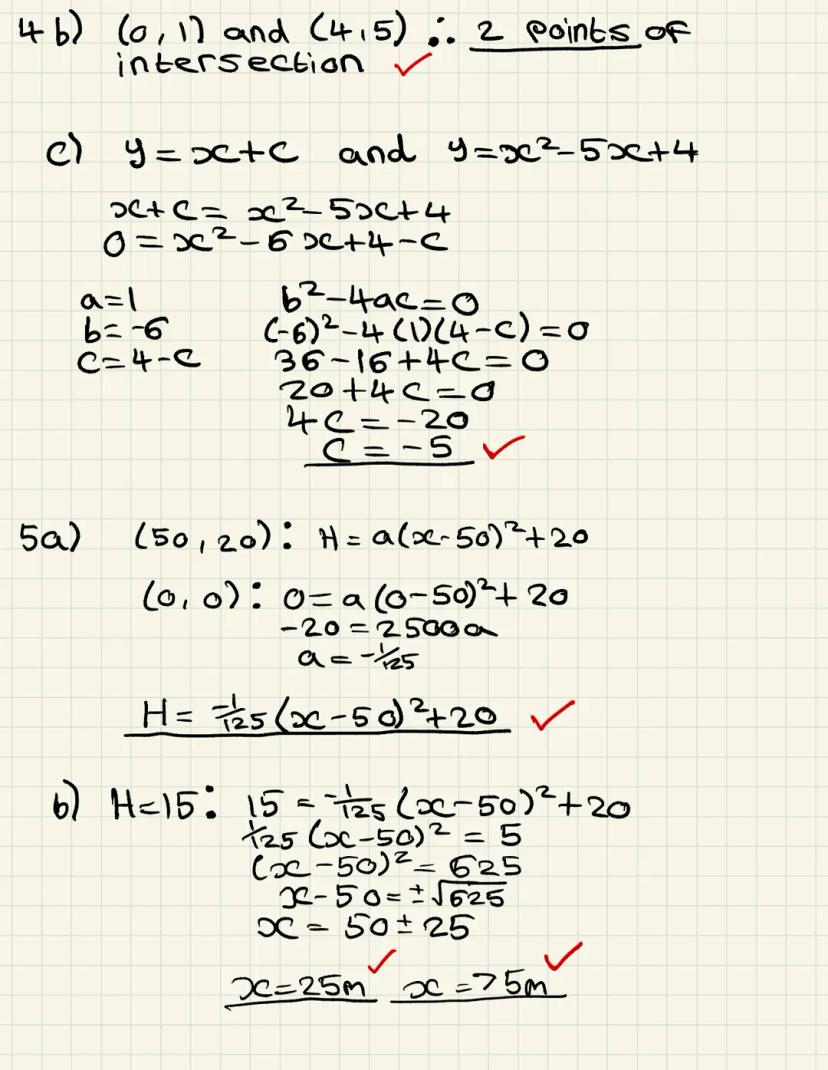 4 b) (0,1) and (4,5) ∴ 2 points of
intersection ✓
c) y = x+c and y=x²-5x+4
x+c = x²-5x+4
0 = x²-6x+4-c
a=1 b²-4ac=0
b=-6 (-6)²-4(1)(4-c)=0
c=4-c 36-16+4c=0
20+4c=0
4c=-20
c=-5 ✓
5a) (50,20): H = a(x-50)²+20
(0,0): 0=a(0-50)²+20
-20=2500a
a=-1/125
H=-1/125(x-50)²+20 ✓
b) H=15: 15=-1/125(x-50)²+20
1/125(x-50)²=5
(x-50)²=625
x-50=±√625
x=50±25
x=25m ✓ x=75m ✓